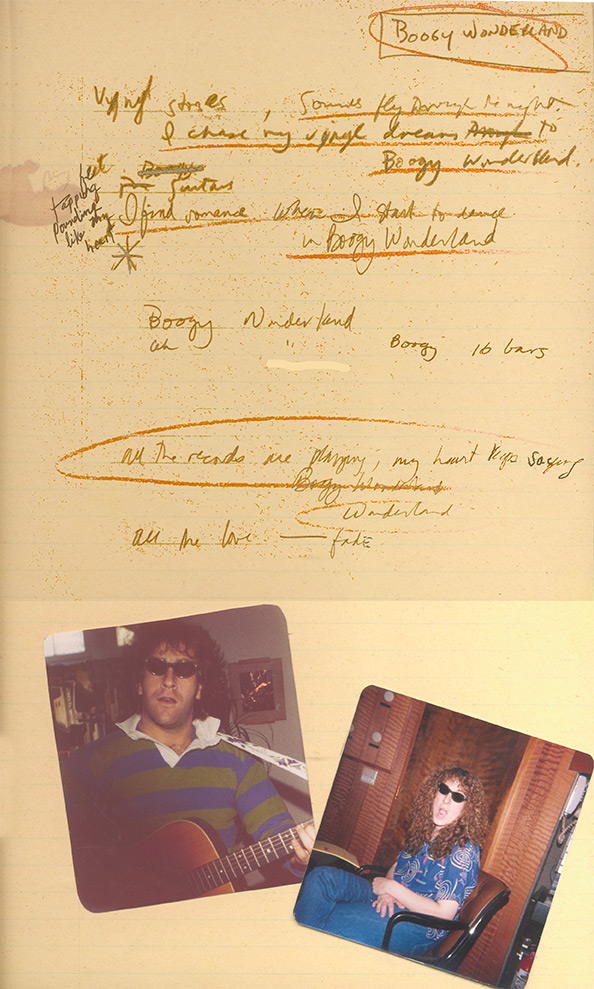 BOOGY WONDERLAND
Vynyl stoses, Sounds fly through the night
I chase my vynyl dreams to
Boogy Wonderland.
beat
Guitars
tapping
pounding
like my
heart
I find romance when I start to dance
in Boogy Wonderland
Boogy Wonderland
" Boogy 16 bars
all the records are playing, my heart keeps saying
Boogy Wonderland
Wonderland
all the love — fade